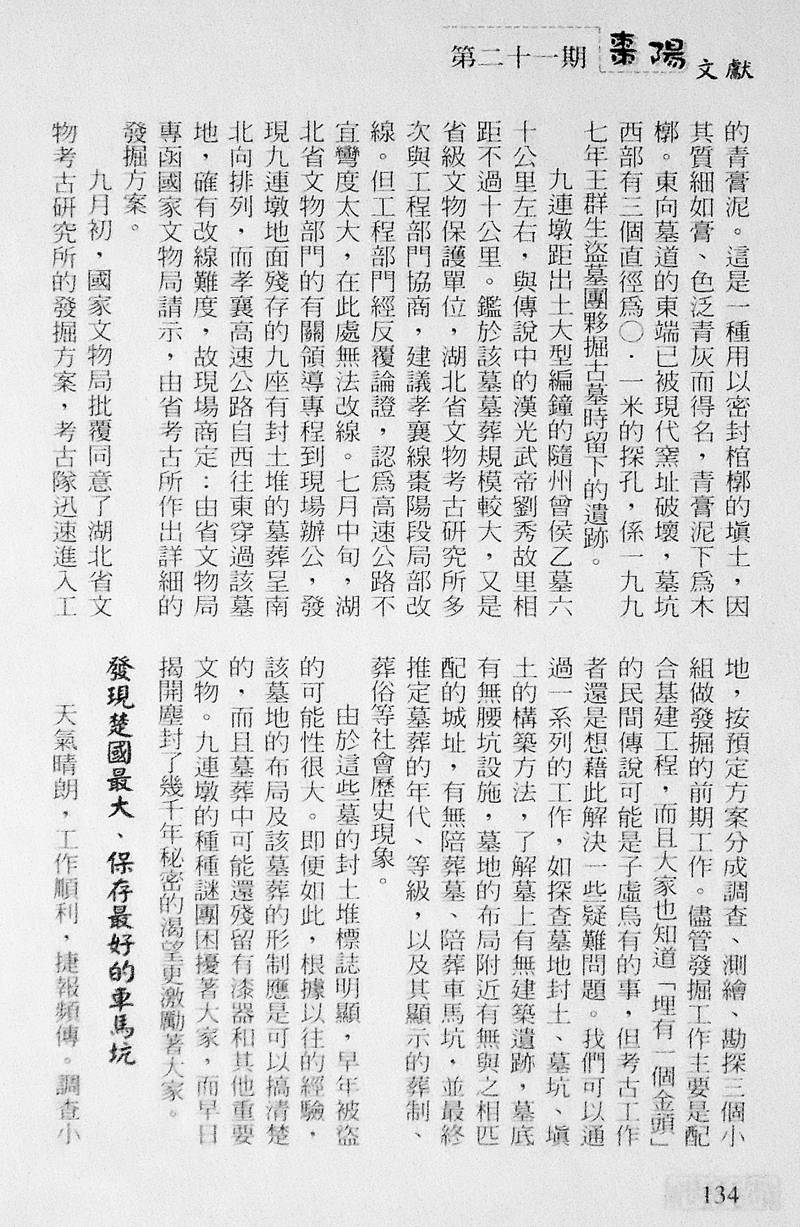 第二十一期 棗陽文獻
的青膏泥。這是一種用以密封棺槨的塡土，因
其質細如膏、色泛青灰而得名，青膏泥下爲木
槨。東向墓道的東端已被現代窯址破壞，墓坑
西部有三個直徑爲〇．一米的探孔，係一九九
七年王群生盜墓團夥掘古墓時留下的遺跡。
九連墩距出土大型編鐘的隨州曾侯乙墓六
十公里左右，與傳說中的漢光武帝劉秀故里相
距不過十公里。鑑於該墓墓葬規模較大，又是
省級文物保護單位，湖北省文物考古研究所多
次與工程部門協商，建議孝襄線棗陽段局部改
線。但工程部門經反覆論證，認爲高速公路不
宜彎度太大，在此處無法改線。七月中旬，湖
北省文物部門的有關領導專程到現場辦公，發
現九連墩地面殘存的九座有封土堆的墓葬呈南
北向排列，而孝襄高速公路自西往東穿過該墓
地，確有改線難度，故現場商定：由省文物局
專函國家文物局請示，由省考古所作出詳細的
發掘方案。
九月初，國家文物局批覆同意了湖北省文
物考古研究所的發掘方案，考古隊迅速進入工
地，按預定方案分成調查、測繪、勘探三個小
組做發掘的前期工作。儘管發掘工作主要是配
合基建工程，而且大家也知道「埋有一個金頭」
的民間傳說可能是子虛烏有的事，但考古工作
者還是想藉此解決一些疑難問題。我們可以通
過一系列的工作，如探查墓地封土、墓坑、塡
土的構築方法，了解墓上有無建築遺跡，墓底
有無腰坑設施，墓地的布局附近有無與之相匹
配的城址，有無陪葬墓、陪葬車馬坑，並最終
推定墓葬的年代、等級，以及其顯示的葬制、
葬俗等社會歷史現象。
由於這些墓的封土堆標誌明顯，早年被盜
的可能性很大。即便如此，根據以往的經驗，
該墓地的布局及該墓葬的形制應是可以搞清楚
的，而且墓葬中可能還殘留有漆器和其他重要
文物。九連墩的種種謎團困擾著大家，而早日
揭開塵封了幾千年秘密的渴望更激勵著大家。
發現楚國最大、保存最好的車馬坑
天氣晴朗，工作順利，捷報頻傳。調查小
134